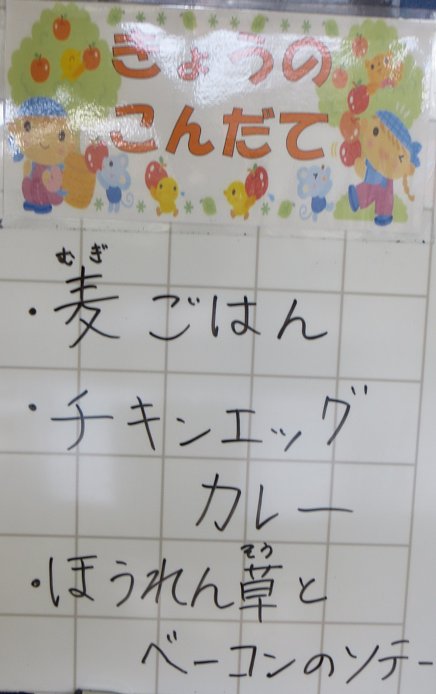 きょうの
こんだて
むぎ
・麦ごはん
・チキンエッグ
カレー
そう
・ほうれん草と
ベーコンのソテー